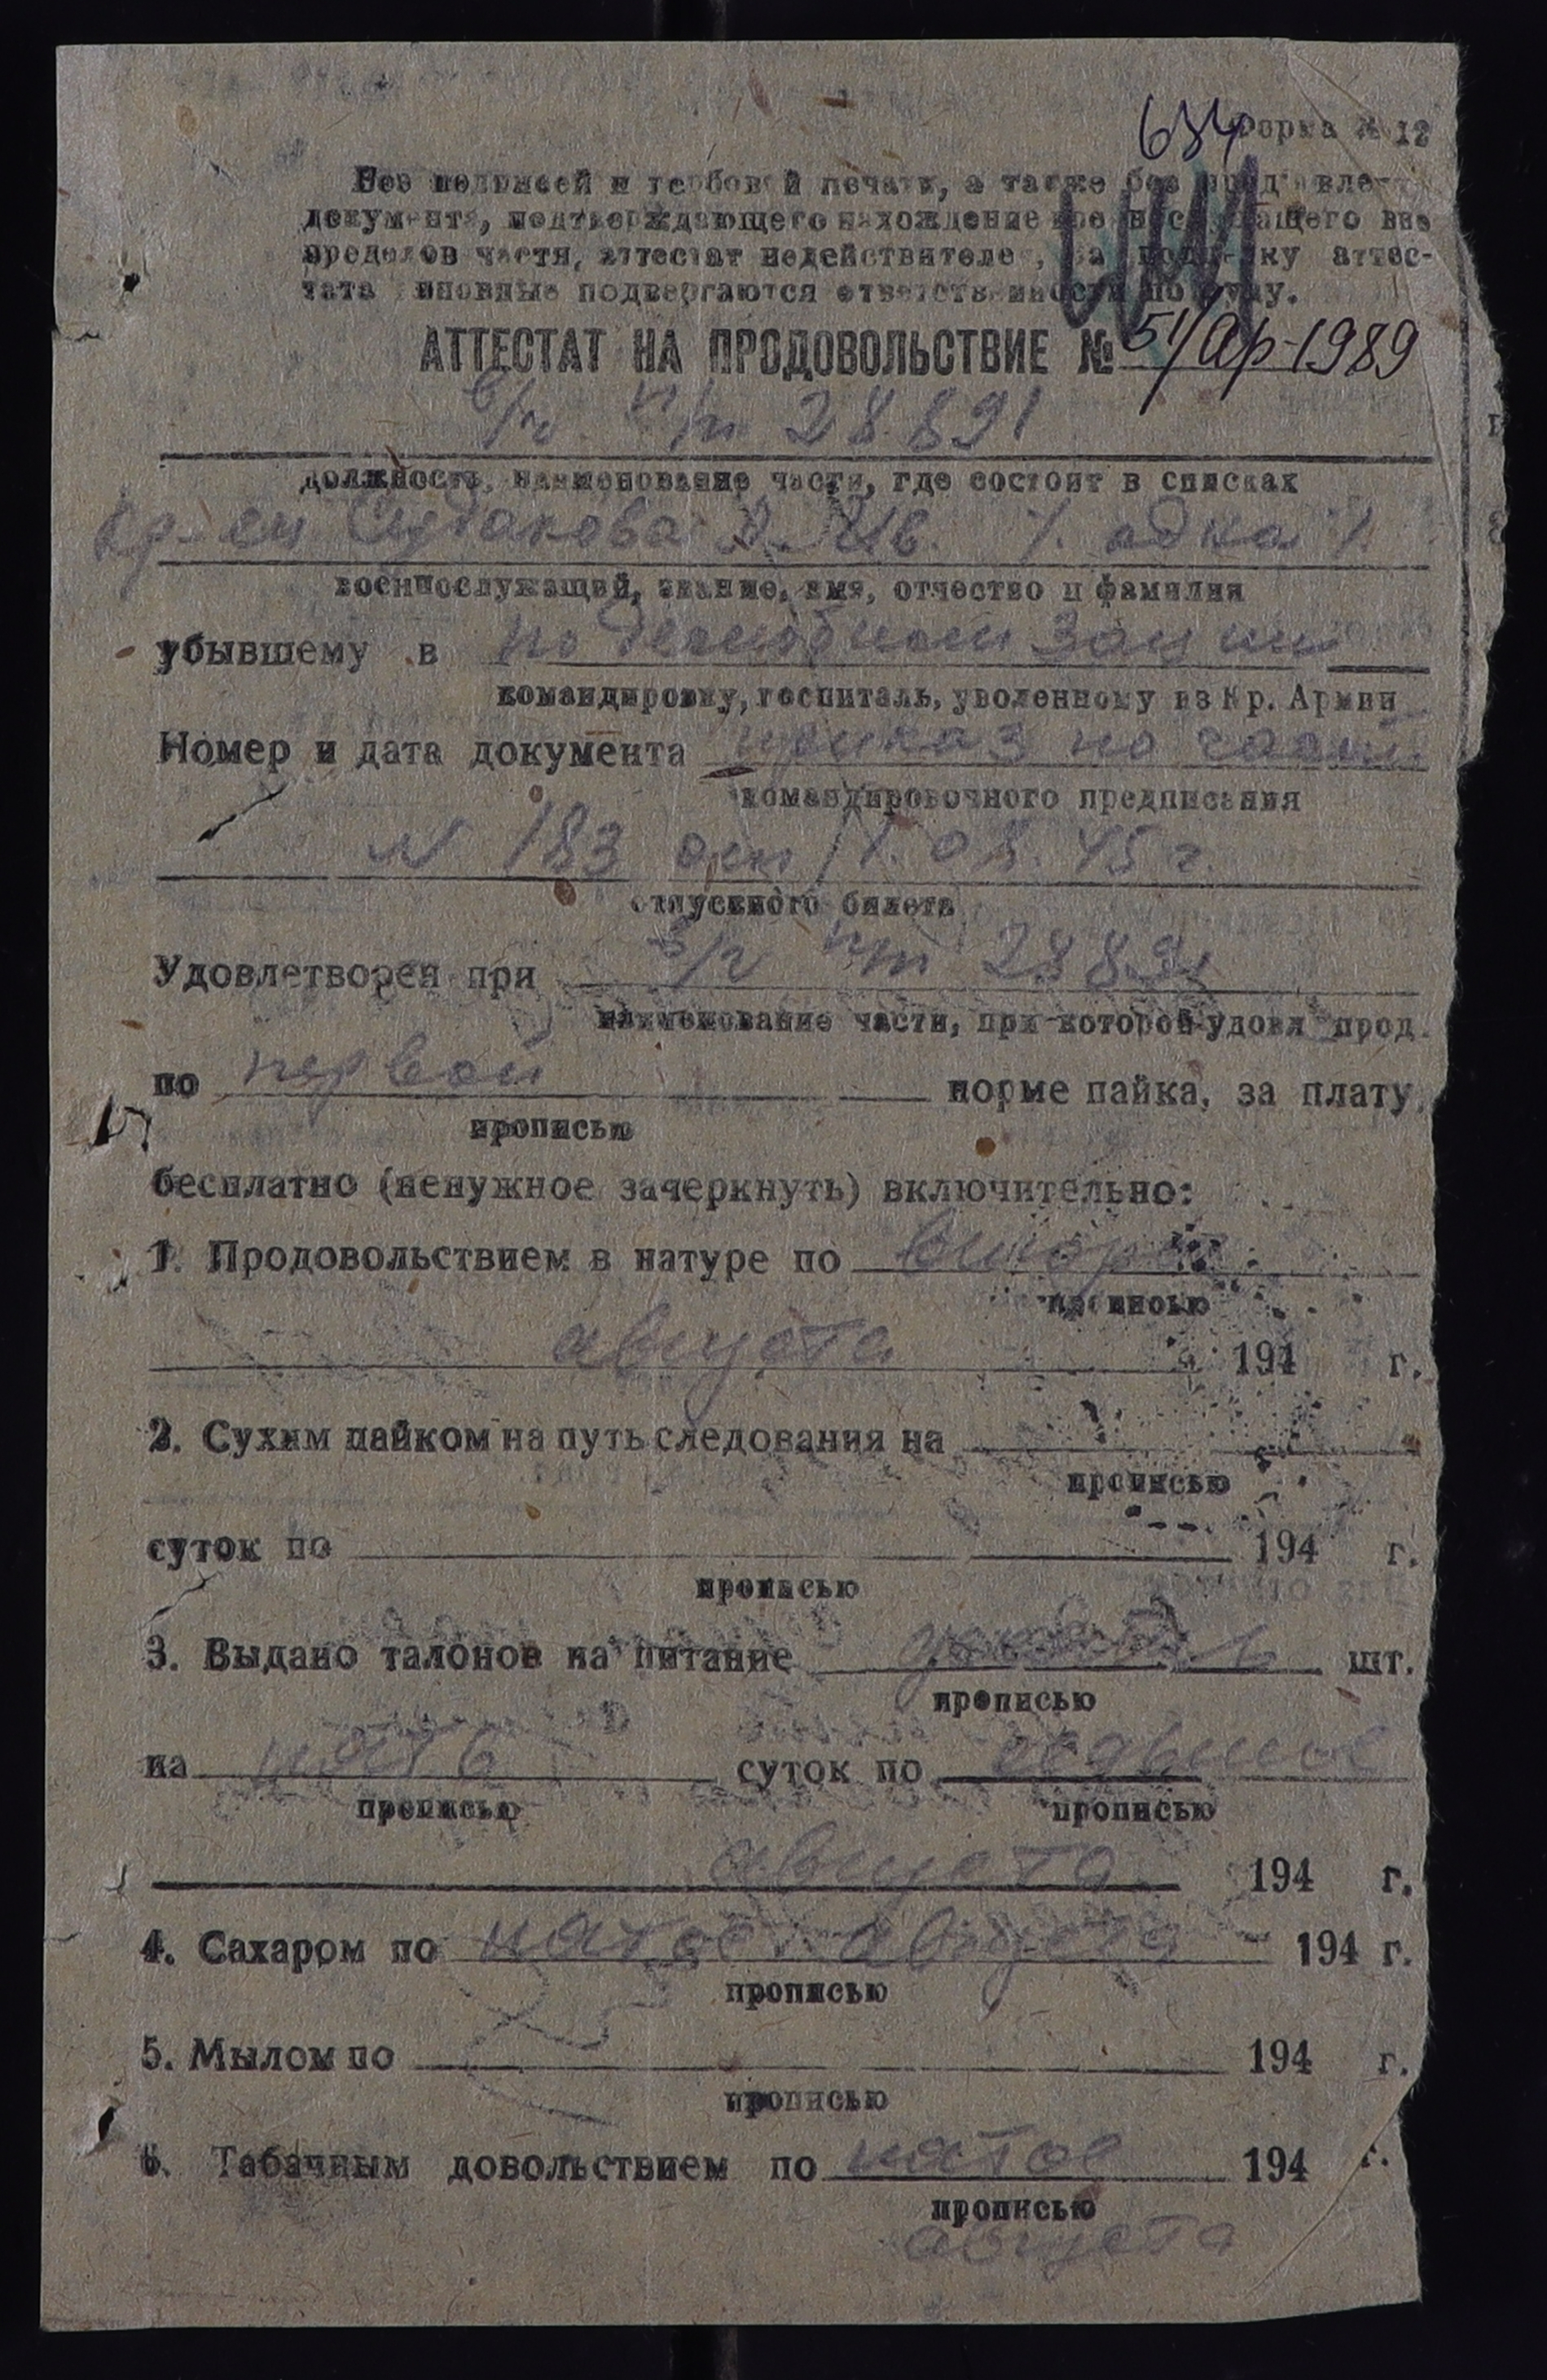 634
Форма № 12
Без подписей и гербовой печати, а также без
документа, подтверждающего нахождение вне
пределов части, аттестат недействителен, За подделку аттес-
тата виновные подвергаются ответственности по суду.
АТТЕСТАТ НА ПРОДОВОЛЬСТВИЕ № 51/Ар-1989
в/ч п/п 28891
должность, наименование части, где состоит в списках
кр-ец Судакова Ив. /. одна /.
военнослужащий, звание, имя, отчество и фамилия
убывшему в по демобилизации
командировку, госпиталь, уволенному из Кр. Армии
Номер и дата документа приказ по части
командировочного предписания
N 183 от 1.08.45 г.
отпускного билета
Удовлетворен при в/ч п/п 28891
наименование части, при которой удовл прод.
по первой норме пайка, за плату,
прописью
бесплатно (ненужное зачеркнуть) включительно:
1. Продовольствием в натуре по второе
прописью
августа 194 г.
2. Сухим пайком на путь следования на
прописью
суток по 194 г.
прописью
3. Выдано талонов на питание шт.
прописью
на пять суток по седьмое
прописью прописью
августа 194 г.
4. Сахаром по пятое августа 194 г.
прописью
5. Мылом по 194 г.
прописью
6. Табачным довольствием по пятое 194 г.
прописью
августа